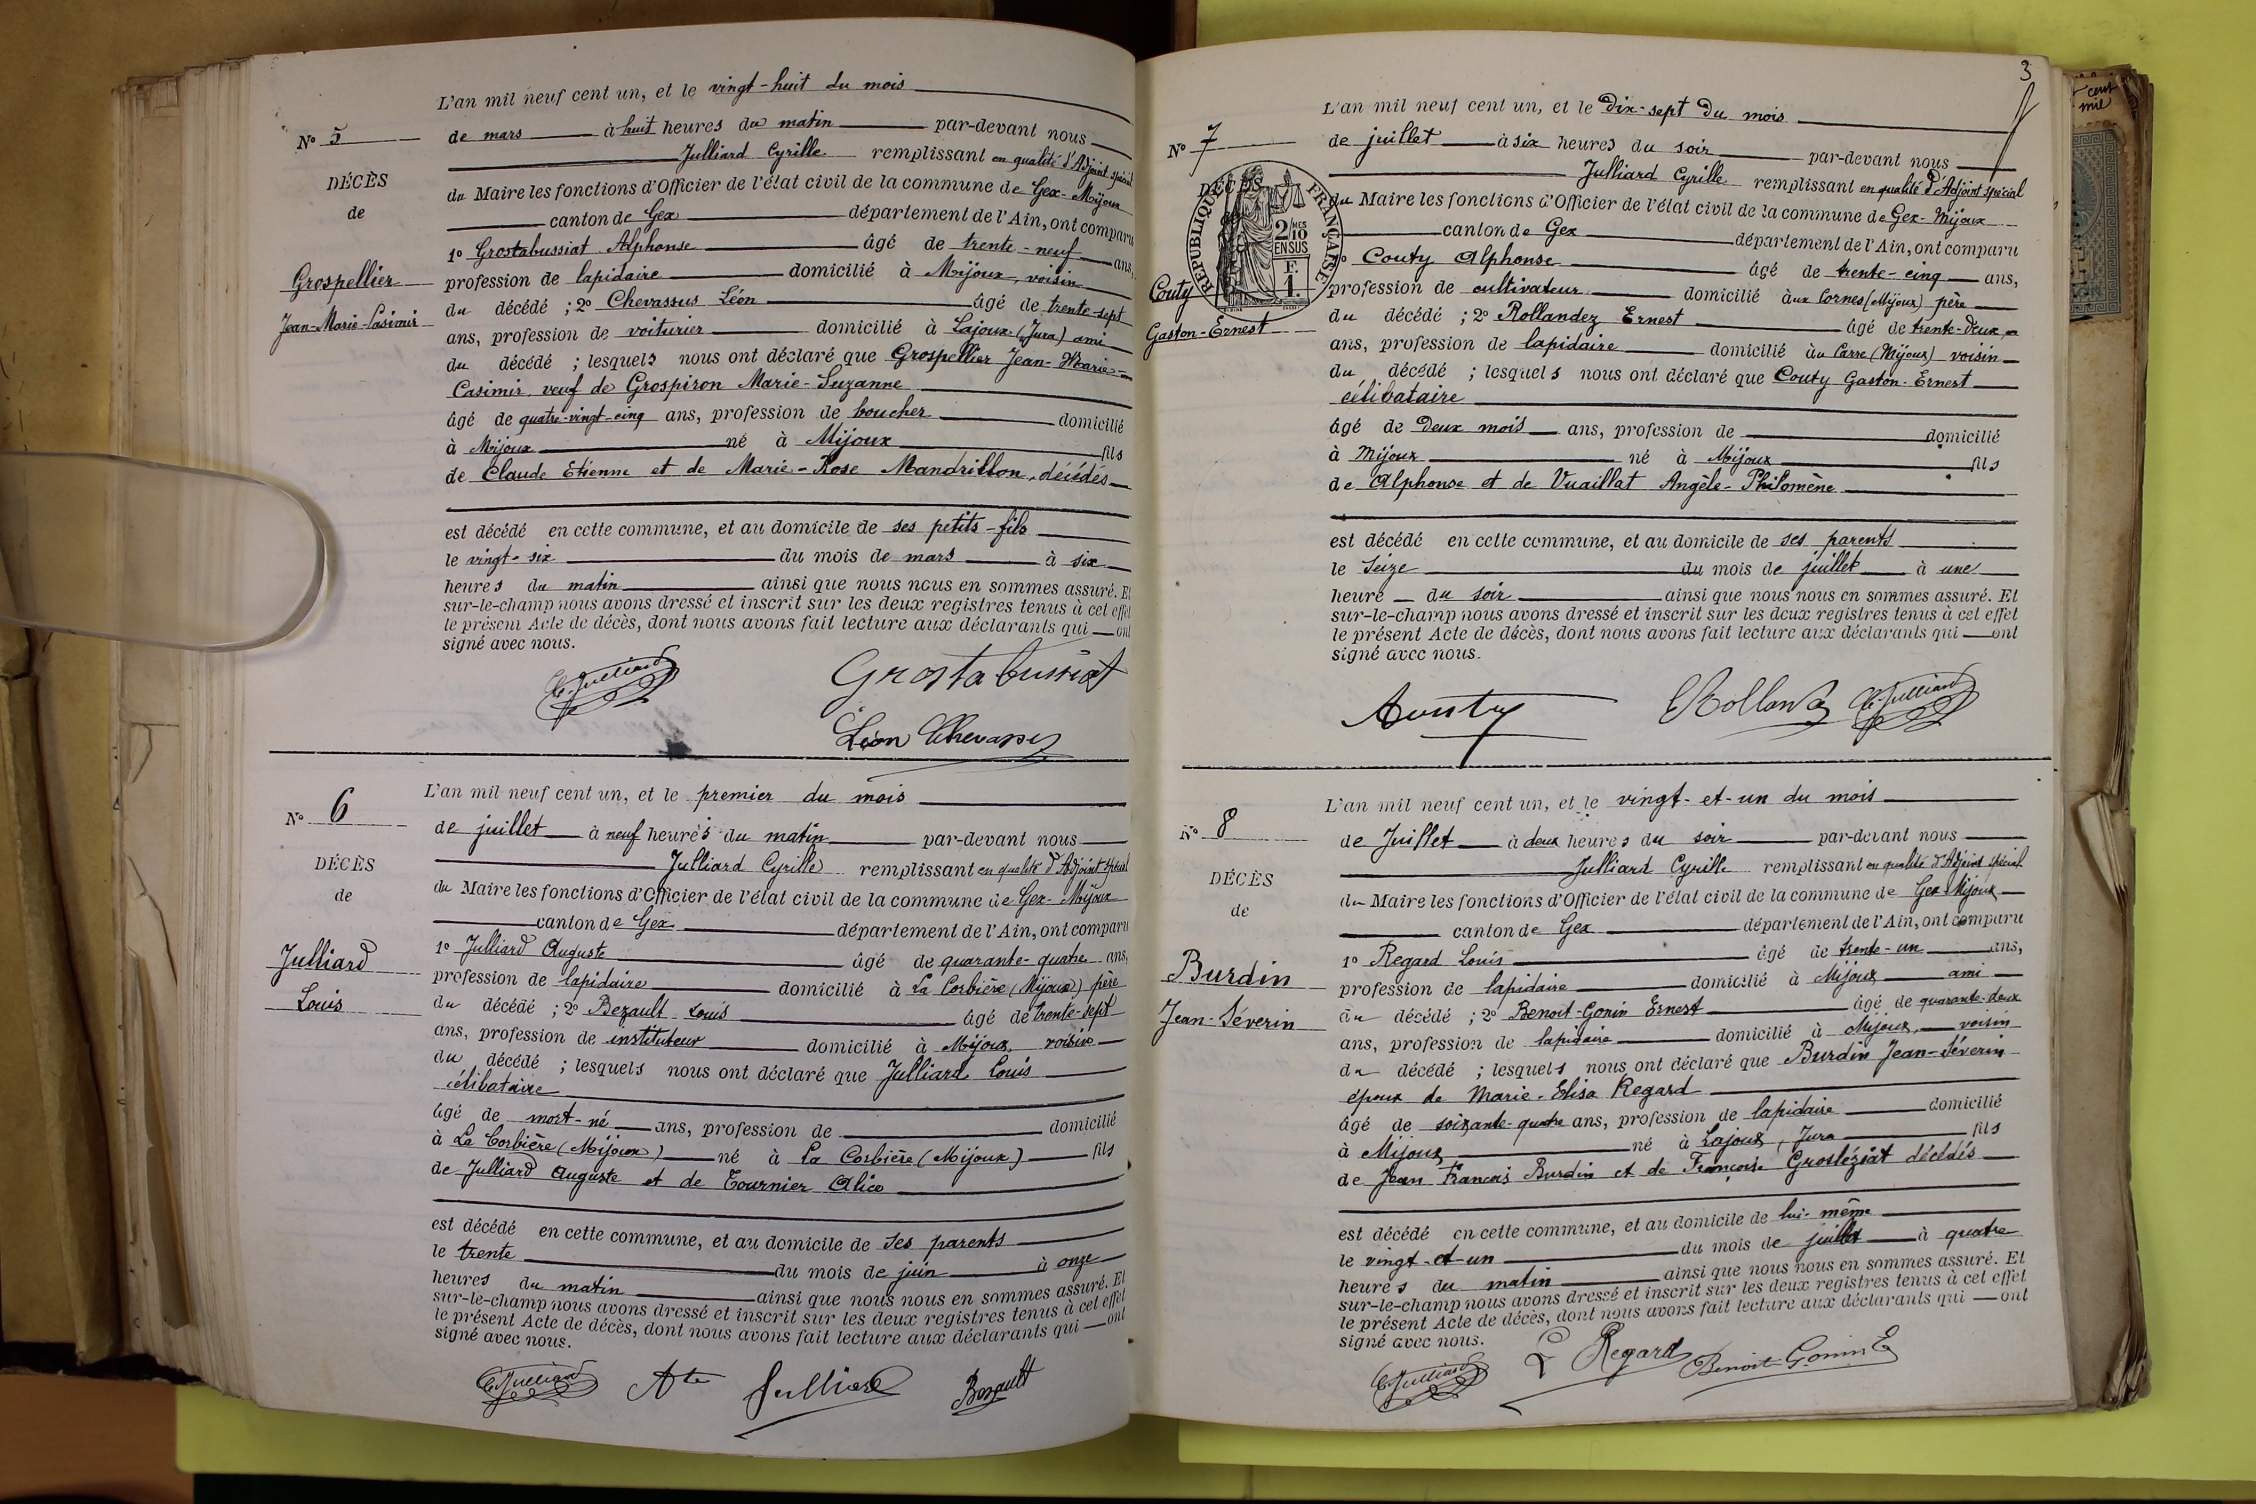 L'an mil neuf cent un, et le vingt-huit du mois
N° 5
de mars à huit heures du matin par-devant nous
Julliard Cyrille remplissant en qualité d'Adjoint spécial
DÉCÈS
du Maire les fonctions d'Officier de l'état civil de la commune de Gex-Mijoux
de
canton de Gex département de l'Ain, ont comparu
1° Grostabussiat Alphonse âgé de trente-neuf ans,
Grospellier
profession de lapidaire domicilié à Mijoux, voisin
Jean-Marie-Casimir
du décédé ; 2° Chevassus Léon âgé de trente-sept
ans, profession de voiturier domicilié à Lajoux (Jura) ami
du décédé ; lesquels nous ont déclaré que Grospellier Jean-Marie-
Casimir, veuf de Grospiron Marie-Suzanne
âgé de quatre-vingt-cinq ans, profession de boucher domicilié
à Mijoux né à Mijoux fils
de Claude Etienne et de Marie-Rose Mandrillon, décédés
est décédé en cette commune, et au domicile de ses petits-fils
le vingt-six du mois de mars à six
heures du matin ainsi que nous nous en sommes assuré. Et
sur-le-champ nous avons dressé et inscrit sur les deux registres tenus à cet effet
le présent Acte de décès, dont nous avons fait lecture aux déclarants qui ont
signé avec nous.
C. Julliard Grostabussiat
Léon Chevassus
L'an mil neuf cent un, et le premier du mois
N° 6
de juillet à neuf heures du matin par-devant nous
Julliard Cyrille remplissant en qualité d'Adjoint spécial
DÉCÈS
du Maire les fonctions d'Officier de l'état civil de la commune de Gex-Mijoux
de
canton de Gex département de l'Ain, ont comparu
1° Julliard Auguste âgé de quarante-quatre ans,
Julliard
profession de lapidaire domicilié à La Corbière (Mijoux) père
Louis
du décédé ; 2° Bezault Louis âgé de trente-sept
ans, profession de instituteur domicilié à Mijoux, voisin
du décédé ; lesquels nous ont déclaré que Julliard Louis
célibataire
âgé de mort-né ans, profession de domicilié
à La Corbière (Mijoux) né à La Corbière (Mijoux) fils
de Julliard Auguste et de Tournier Alice
est décédé en cette commune, et au domicile de ses parents
le trente du mois de juin à onze
heures du matin ainsi que nous nous en sommes assuré. Et
sur-le-champ nous avons dressé et inscrit sur les deux registres tenus à cet effet
le présent Acte de décès, dont nous avons fait lecture aux déclarants qui ont
signé avec nous.
C. Julliard Ate Julliard Bezault
3
L'an mil neuf cent un, et le dix-sept du mois
N° 7
de juillet à six heures du soir par-devant nous
Julliard Cyrille remplissant en qualité d'Adjoint spécial
DÉCÈS
RÉPUBLIQUE FRANÇAISE
2/10 EN SUS
F. 1.
du Maire les fonctions d'Officier de l'état civil de la commune de Gex-Mijoux
canton de Gex département de l'Ain, ont comparu
Couty Alphonse âgé de trente-cinq ans,
Couty
profession de cultivateur domicilié aux Cornes (Mijoux) père
Gaston-Ernest
du décédé ; 2° Rollandez Ernest âgé de trente-deux
ans, profession de lapidaire domicilié au Carre (Mijoux) voisin
du décédé ; lesquels nous ont déclaré que Couty Gaston-Ernest
célibataire
âgé de deux mois ans, profession de domicilié
à Mijoux né à Mijoux fils
de Alphonse et de Vuaillat Angèle-Philomène
est décédé en cette commune, et au domicile de ses parents
le seize du mois de juillet à une
heure du soir ainsi que nous nous en sommes assuré. Et
sur-le-champ nous avons dressé et inscrit sur les deux registres tenus à cet effet
le présent Acte de décès, dont nous avons fait lecture aux déclarants qui ont
signé avec nous.
A Couty E Rollandez C. Julliard
L'an mil neuf cent un, et le vingt-et-un du mois
N° 8
de Juillet à deux heures du soir par-devant nous
Julliard Cyrille remplissant en qualité d'Adjoint spécial
DÉCÈS
du Maire les fonctions d'Officier de l'état civil de la commune de Gex-Mijoux
de
canton de Gex département de l'Ain, ont comparu
1° Regard Louis âgé de trente-un ans,
Burdin
profession de lapidaire domicilié à Mijoux ami
Jean-Séverin
du décédé ; 2° Benoit-Gonin Ernest âgé de quarante-deux
ans, profession de lapidaire domicilié à Mijoux, voisin
du décédé ; lesquels nous ont déclaré que Burdin Jean-Séverin
époux de Marie-Elisa Regard
âgé de soixante-quatre ans, profession de lapidaire domicilié
à Mijoux né à Lajoux, Jura fils
de Jean François Burdin et de Françoise Grosléziat décédés
est décédé en cette commune, et au domicile de lui-même
le vingt-et-un du mois de juillet à quatre
heures du matin ainsi que nous nous en sommes assuré. Et
sur-le-champ nous avons dressé et inscrit sur les deux registres tenus à cet effet
le présent Acte de décès, dont nous avons fait lecture aux déclarants qui ont
signé avec nous.
C. Julliard L Regard Benoit-Gonin E
cent
mie